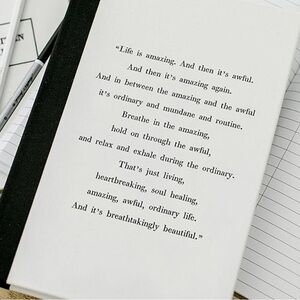 “Life is amazing. And then it’s awful.
And then it’s amazing again.
And in between the amazing and the awful
it’s ordinary and mundane and routine.
Breathe in the amazing,
hold on through the awful,
and relax and exhale during the ordinary.
That’s just living,
heartbreaking, soul healing,
amazing, awful, ordinary life.
And it’s breathtakingly beautiful.”